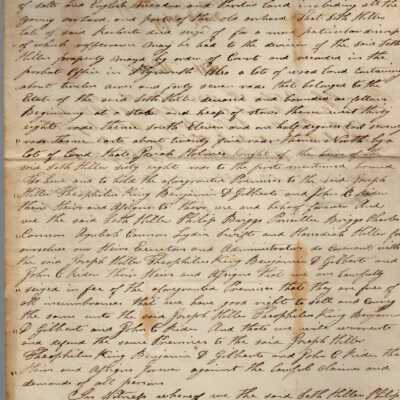 of salt and English meadow and Pasture Land including all the
young orchard and part of the old orchard that Seth Hiller
late of said Rochester died seized of for a more particular discrip
of which refferance may be had to the division of the said Seth
Hiller property made by order of Court and recorded in the
probat office in Plymouth Also a lot of wood Land containing
about twelve acres and forty seven rods that belonged to the
Estate of the said Seth Hiller deceased and bounded as follows
Beginning at a stake and heap of stones thence west thirty
eight rods thence South Eleven and one half degrees East seventy
rods thence East about twenty five rods thence North by a
lot of Land that Holmes bought of the heirs of the
said Seth Hiller sixty eight rods to the first mentioned bound
To Have and to hold the aforegranted Premises to the said Joseph
Hiller Theophilus King Benjamin D Gilbert and John C Rider
their Heirs and Assigns to there use and behoof forever And
we the said Seth Hiller Philip Briggs Pamilla Briggs Charles
Cannon Cannon Lydia Swift and Hannah Hiller for
ourselves our Heirs Executors and Administrators do covenant with
the said Joseph Hiller Theophilus King Benjamin D Gilbert and
John C Rider their Heirs and Assigns that we are lawfully
seized in fee of the aforegranted Premises that they are free of
all incumbrances that we have good right to sell and convey
the same unto the said Joseph Hiller Theophilus King Benjamin
D Gilbert and John C Rider And that we will warrant
and defend the same Premises to the said Joseph Hiller
Theophilus King Benjamin D Gilbert and John C Rider their
Heirs and Assigns forever against the lawfull claims and
demands of all persons
In Witness whereof we the said Seth Hiller Philip